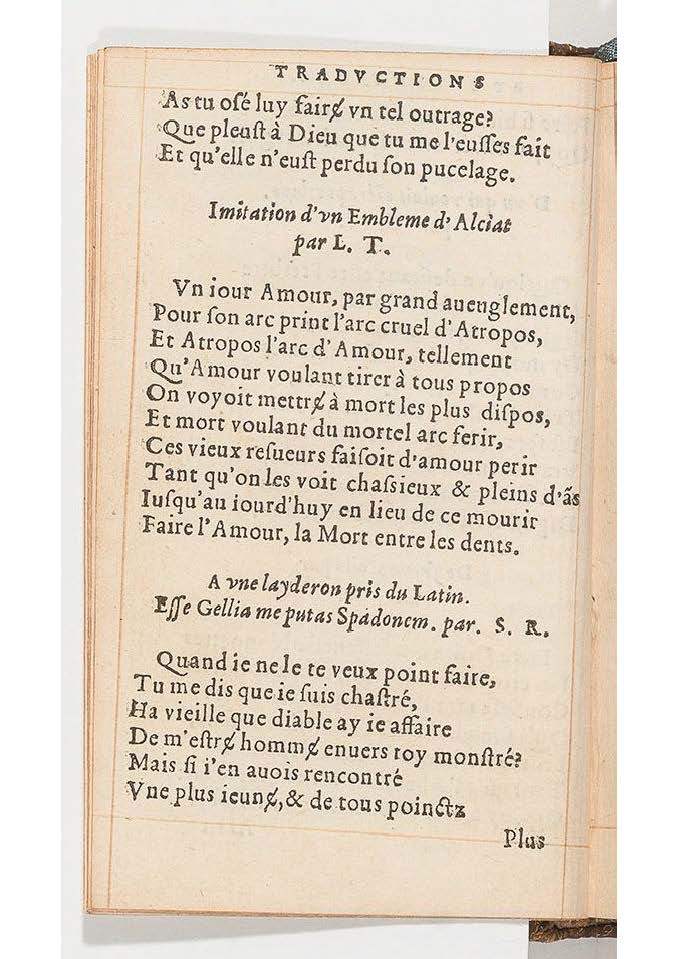 TRADVCTIONS
As tu osé luy fairɇ vn tel outrage?
Que pleust à Dieu que tu me l'eusses fait
Et qu'elle n'eust perdu son pucelage.
Imitation d'vn Embleme d'Alciat
par L. T.
Vn iour Amour, par grand aueuglement,
Pour son arc print l'arc cruel d'Atropos,
Et Atropos l'arc d'Amour, tellement
Qu'Amour voulant tirer à tous propos
On voyoit mettrɇ à mort les plus dispos,
Et mort voulant du mortel arc ferir,
Ces vieux resueurs faisoit d'amour perir
Tant qu'on les voit chassieux & pleins d'ãs
Iusqu'au iourd'huy en lieu de ce mourir
Faire l'Amour, la Mort entre les dents.
A vne layderon pris du Latin.
Esse Gellia me putas Spadonem. par. S. R.
Quand ie ne le te veux point faire,
Tu me dis que ie suis chastré,
Ha vieille que diable ay ie affaire
De m'estrɇ hommɇ enuers toy monstré?
Mais si i'en auois rencontré
Vne plus ieunɇ, & de tous poinctz
Plus